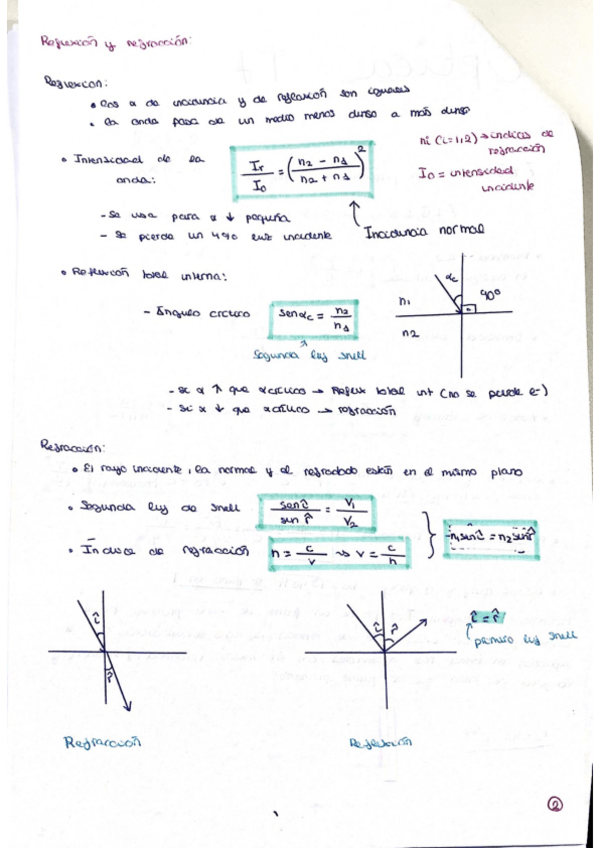 Reflexión y refracción:
Reflexion:
• Los α de incidencia y de reflexión son iguales
• La onda pasa de un medio menos denso a más denso
ni (i=1,2) → indices de
refracción
• Intensidad de la
onda:
Ir/I0 = (n2 - n1 / n2 + n1)²
I0 = intensidad
incidente
- Se usa para α ↓ pequeña
- Se pierde un 4% luz incidente
Incidencia normal
• Reflexión total interna:
αc
90º
n1
n2
- Ángulo crítico
sen αc = n2/n1
Segunda ley Snell
- Si α ↑ que α crítico → Reflex total int (no se pierde e-)
- Si α ↓ que α crítico → refracción
Refracción:
• El rayo incidente, la normal y el refractado están en el mismo plano
• Segunda ley de Snell
sen î / sen r̂ = V1/V2
• Índice de refracción
n = c/v → v = c/n
n1 sen î = n2 sen r̂
î
r̂
î
r̂
î = r̂
primera ley Snell
Refracción
Reflexión
2